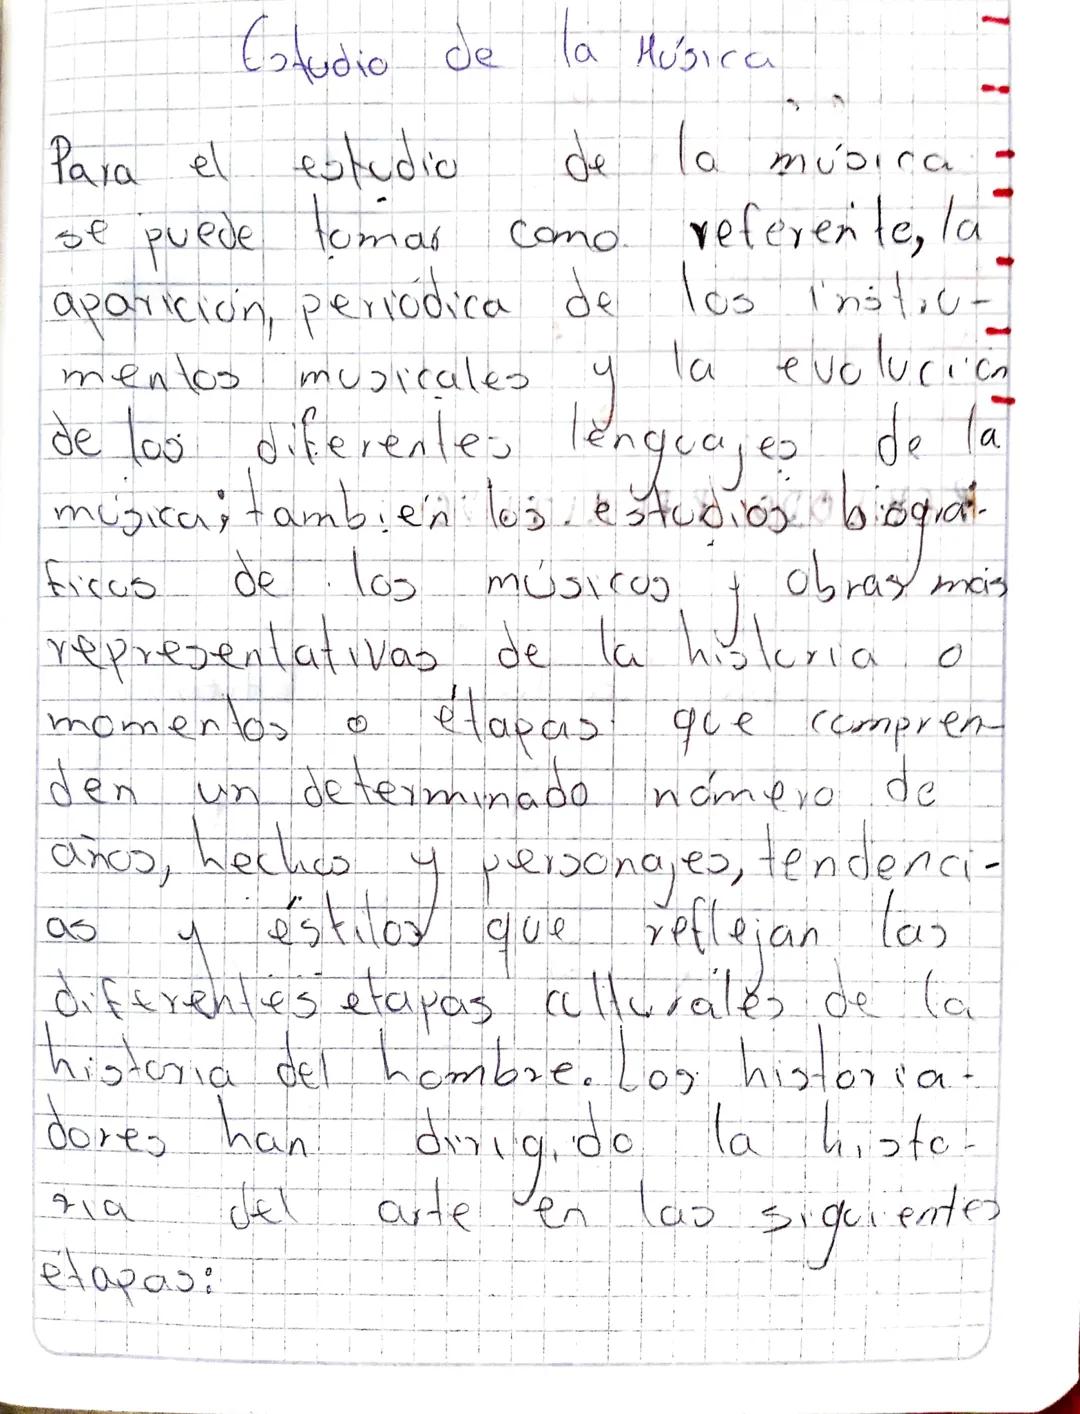 Estudio de la Música
Para el estudio de la música
se puede tomar como referente, la
aparición, periódica de los instru-
mentos musicales y la evolución
de los diferentes lenguajes de la
música; también los estudios biográ-
ficos de los músicos y obras más
representativas de la historia o
momentos o etapas que compren-
den un determinado número de
años, hechos y personajes, tendenci-
as y estilos que reflejan las
diferentes etapas culturales de la
historia del hombre. Los historia-
dores han dirigido la histo-
ria del arte en las siguientes
etapas: